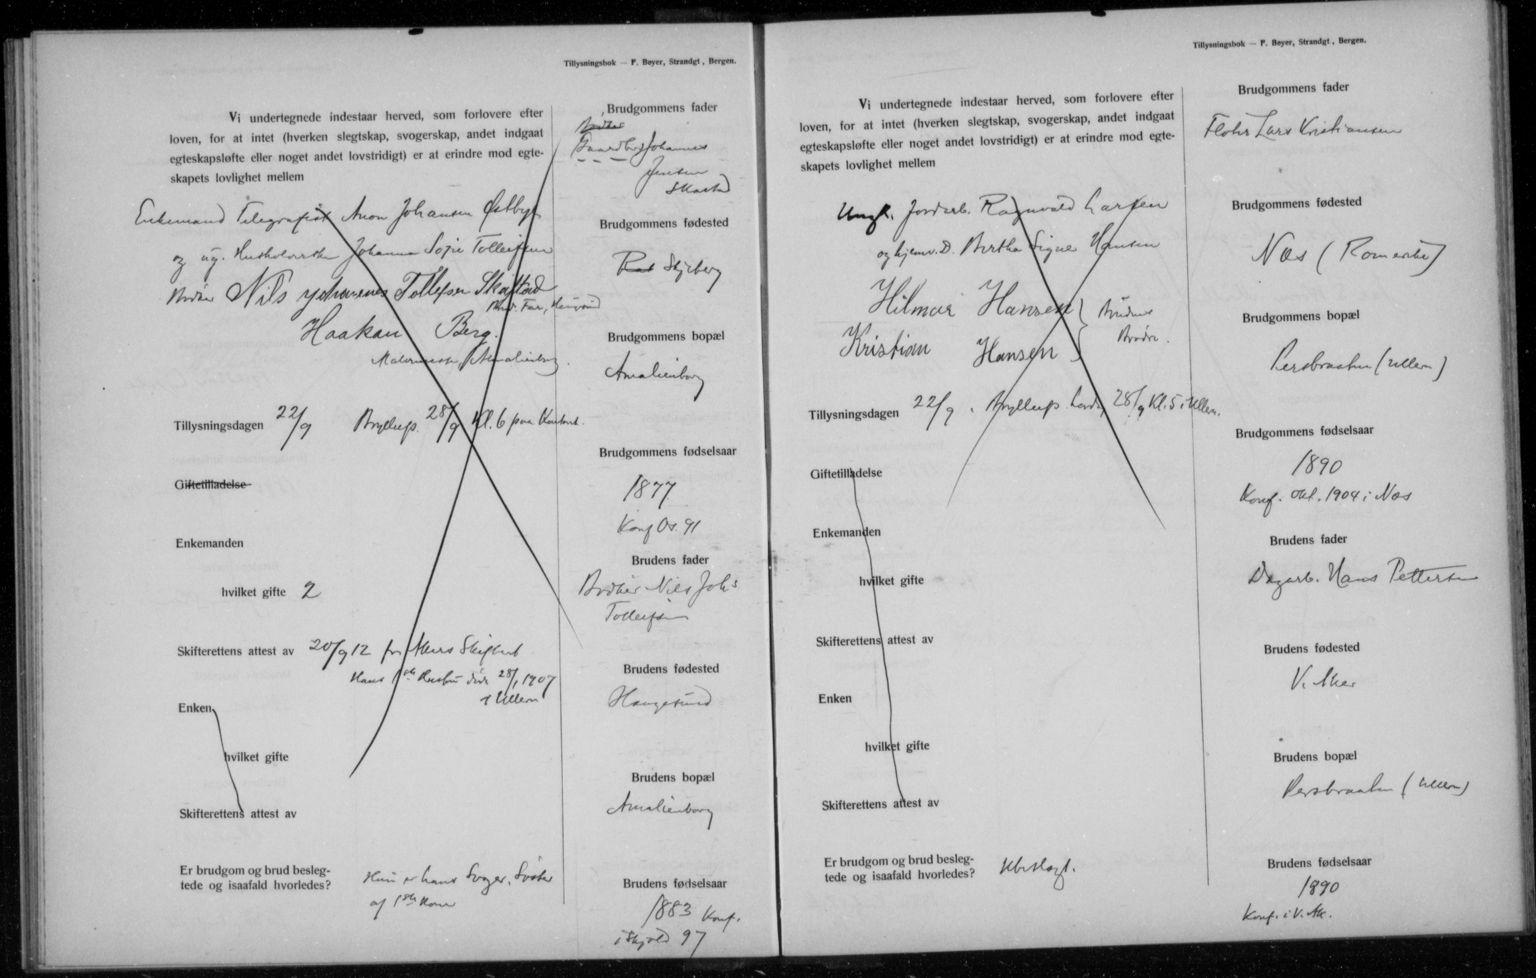 Tillysningsbok — F. Bøyer, Strandgt., Bergen.
Vi undertegnede indestaar herved, som forlovere efter
loven, for at intet (hverken slegtskap, svogerskap, andet indgaat
egteskapsløfte eller noget andet lovstridigt) er at erindre mod egte-
skapets lovlighet mellem
Enkemand Telegrafist Anon Johansen Østbye
og ug. Johanna Sofie Tollefsen
Nils Johannes Tollefsen Skaftad
Haakan Berg.
Amalienborg.
Tillysningsdagen 22/9 Bryllup. 28/9 Kl. 6 paa Kontoret.
Giftetilladelse
Enkemanden
hvilket gifte 2
Skifterettens attest av 20/9 12 fra Akers Skifteret
Hans 1ste Hustru døde 28/1 1907
i Ullern
Enken
hvilket gifte
Skifterettens attest av
Er brudgom og brud besleg-
tede og isaafald hvorledes?
Hun er hans Svoger. Søster
af 1ste Kone
Brudgommens fader
Gaardbr. Johannes
Jensen
Brudgommens fødested
Skjeberg
Brudgommens bopæl
Amalienborg
Brudgommens fødselsaar
1877
Konf. 91
Brudens fader
Nils Johs
Tollefsen
Brudens fødested
Haugesund
Brudens bopæl
Amalienborg
Brudens fødselsaar
1883 Konf.
i Skjold 97
Tillysningsbok — F. Bøyer, Strandgt., Bergen.
Vi undertegnede indestaar herved, som forlovere efter
loven, for at intet (hverken slegtskap, svogerskap, andet indgaat
egteskapsløfte eller noget andet lovstridigt) er at erindre mod egte-
skapets lovlighet mellem
Ungk. Jordarb. Ragnvald Larsen
og hjemv. D. Bertha Signe Hansen
Hilmar Hansen } Brudens
Kristian Hansen } Brødre.
Tillysningsdagen 22/9. Bryllup. Lørdag 28/9 Kl. 5 i Ullern.
Giftetilladelse
Enkemanden
hvilket gifte
Skifterettens attest av
Enken
hvilket gifte
Skifterettens attest av
Er brudgom og brud besleg-
tede og isaafald hvorledes?
Ubeslægt.
Brudgommens fader
Lars Kristiansen
Brudgommens fødested
Næs (Romerike)
Brudgommens bopæl
Persbraaten (Ullern)
Brudgommens fødselsaar
1890
Konf. Okt. 1904 i Næs
Brudens fader
Dagarb. Hans Pettersen
Brudens fødested
V. Aker
Brudens bopæl
Persbraaten (Ullern)
Brudens fødselsaar
1890
Konf. i V. Ak.